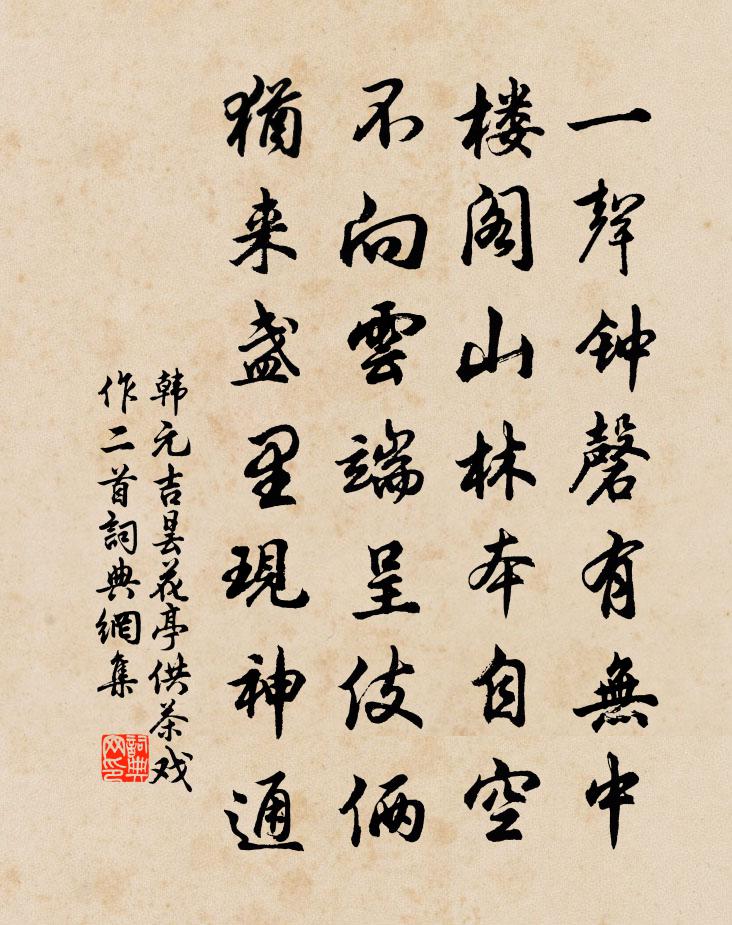 一聲钟磬有無中
楼阁山林本自空
不向雲端呈伎俩
猶来盏里現神通
韩元吉昙花亭供茶戏
作二首詞典網集
詞典
网印